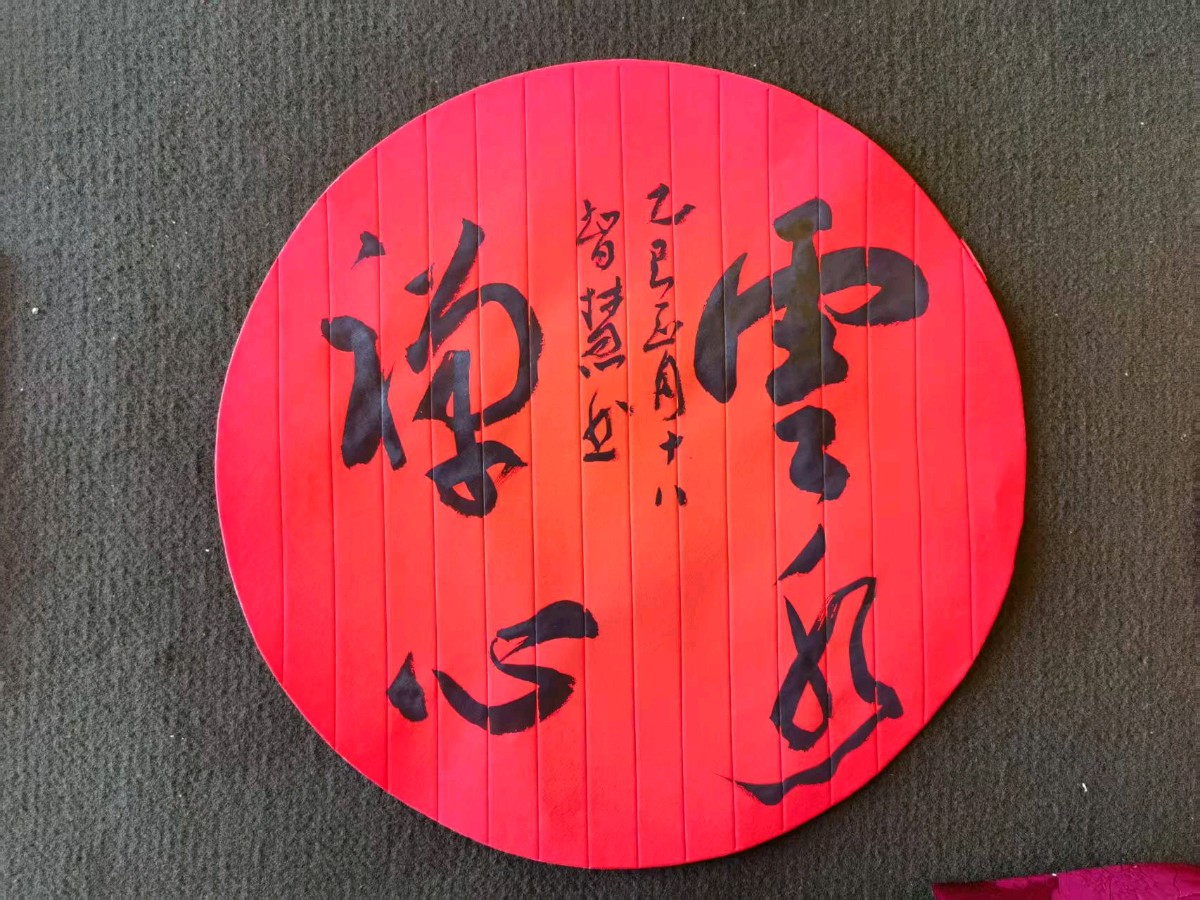 雲
禪心
乙巳正月十八
智慧書